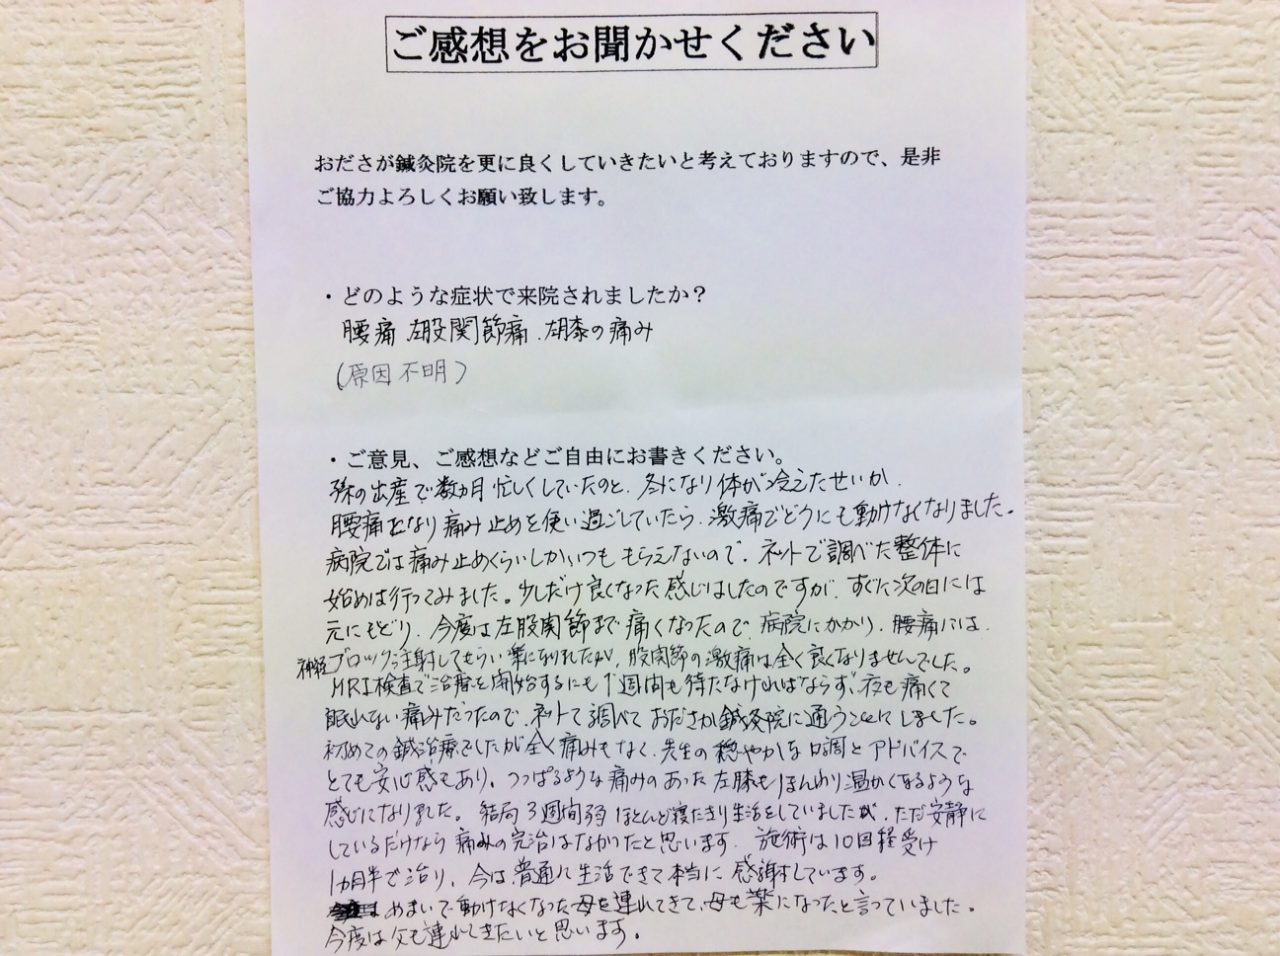 ご感想をお聞かせください
おださが鍼灸院を更に良くしていきたいと考えておりますので、是非
ご協力よろしくお願い致します。
・どのような症状で来院されましたか？
腰痛、左股関節痛、左膝の痛み
(原因不明)
・ご意見、ご感想などご自由にお書きください。
の出産で数カ月忙しくしていたのと、冬になり体が冷えたせいか、
腰痛となり痛み止めを使い過ごしていたら、激痛でどうにも動けなくなりました。
病院では痛み止めくらいしかいつももらえないので、ネットで調べた整体に
始めは行ってみました。少しだけ良くなった感じはしたのですが、すぐに次の日には
元にもどり、今度は左股関節まで痛くなったので、病院にかかり、腰痛には、
神経ブロック注射してもらい楽になりましたが、股関節の激痛は全く良くなりませんでした。
MRI検査で治療を開始するにも1週間も待たなければならず、夜も痛くて
眠れない痛みだったので、ネットで調べておださが鍼灸院に通うことにしました。
初めての鍼治療でしたが全く痛みもなく、先生の穏やかな口調とアドバイスで
とても安心感もあり、つっぱるような痛みのあった左膝もほんわり温かくなるような
感じになりました。結局3週間弱ほとんど寝たきり生活をしていましたが、ただ安静に
しているだけなら痛みの完治はなかったと思います。施術は10回程受け
1カ月半で治り、今は普通に生活できて本当に感謝しています。
めまいで動けなくなった母を連れてきて、母も楽になったと言っていました。
今度は父も連れてきたいと思います。